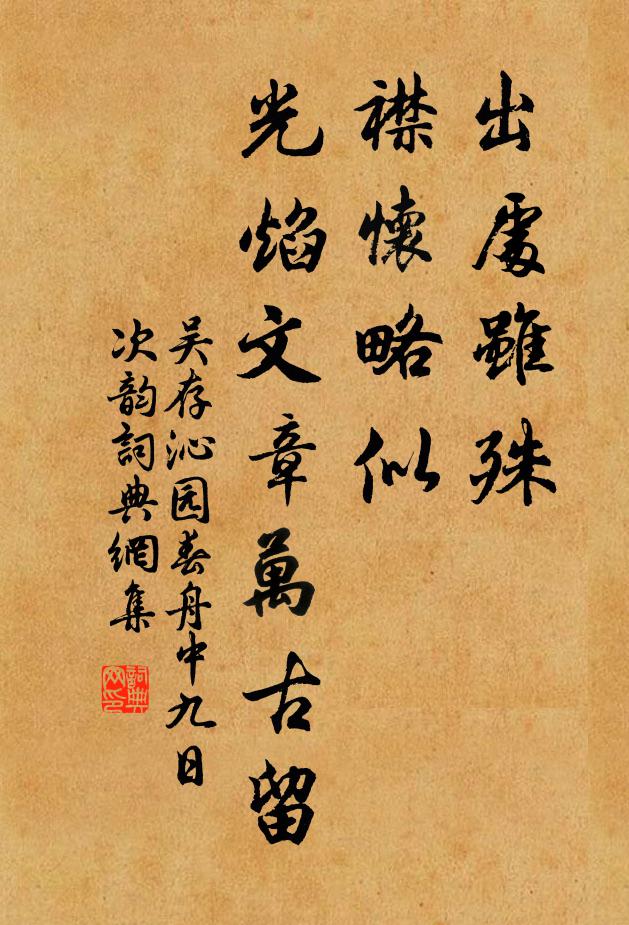 出處雖殊
襟懷略似
光焰文章萬古留
吴存沁园春舟中九日
次韵詞典網集
詞典網印